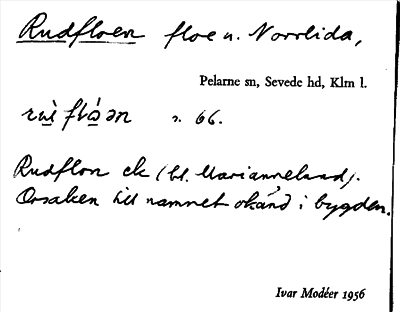 Rudfloen floe u. Norrlida,
Pelarne sn, Sevede hd, Klm l.
s. 66.
Rudflon ek (bl. Marianneland).
Orsaken till namnet okänd i bygden.
Ivar Modéer 1956